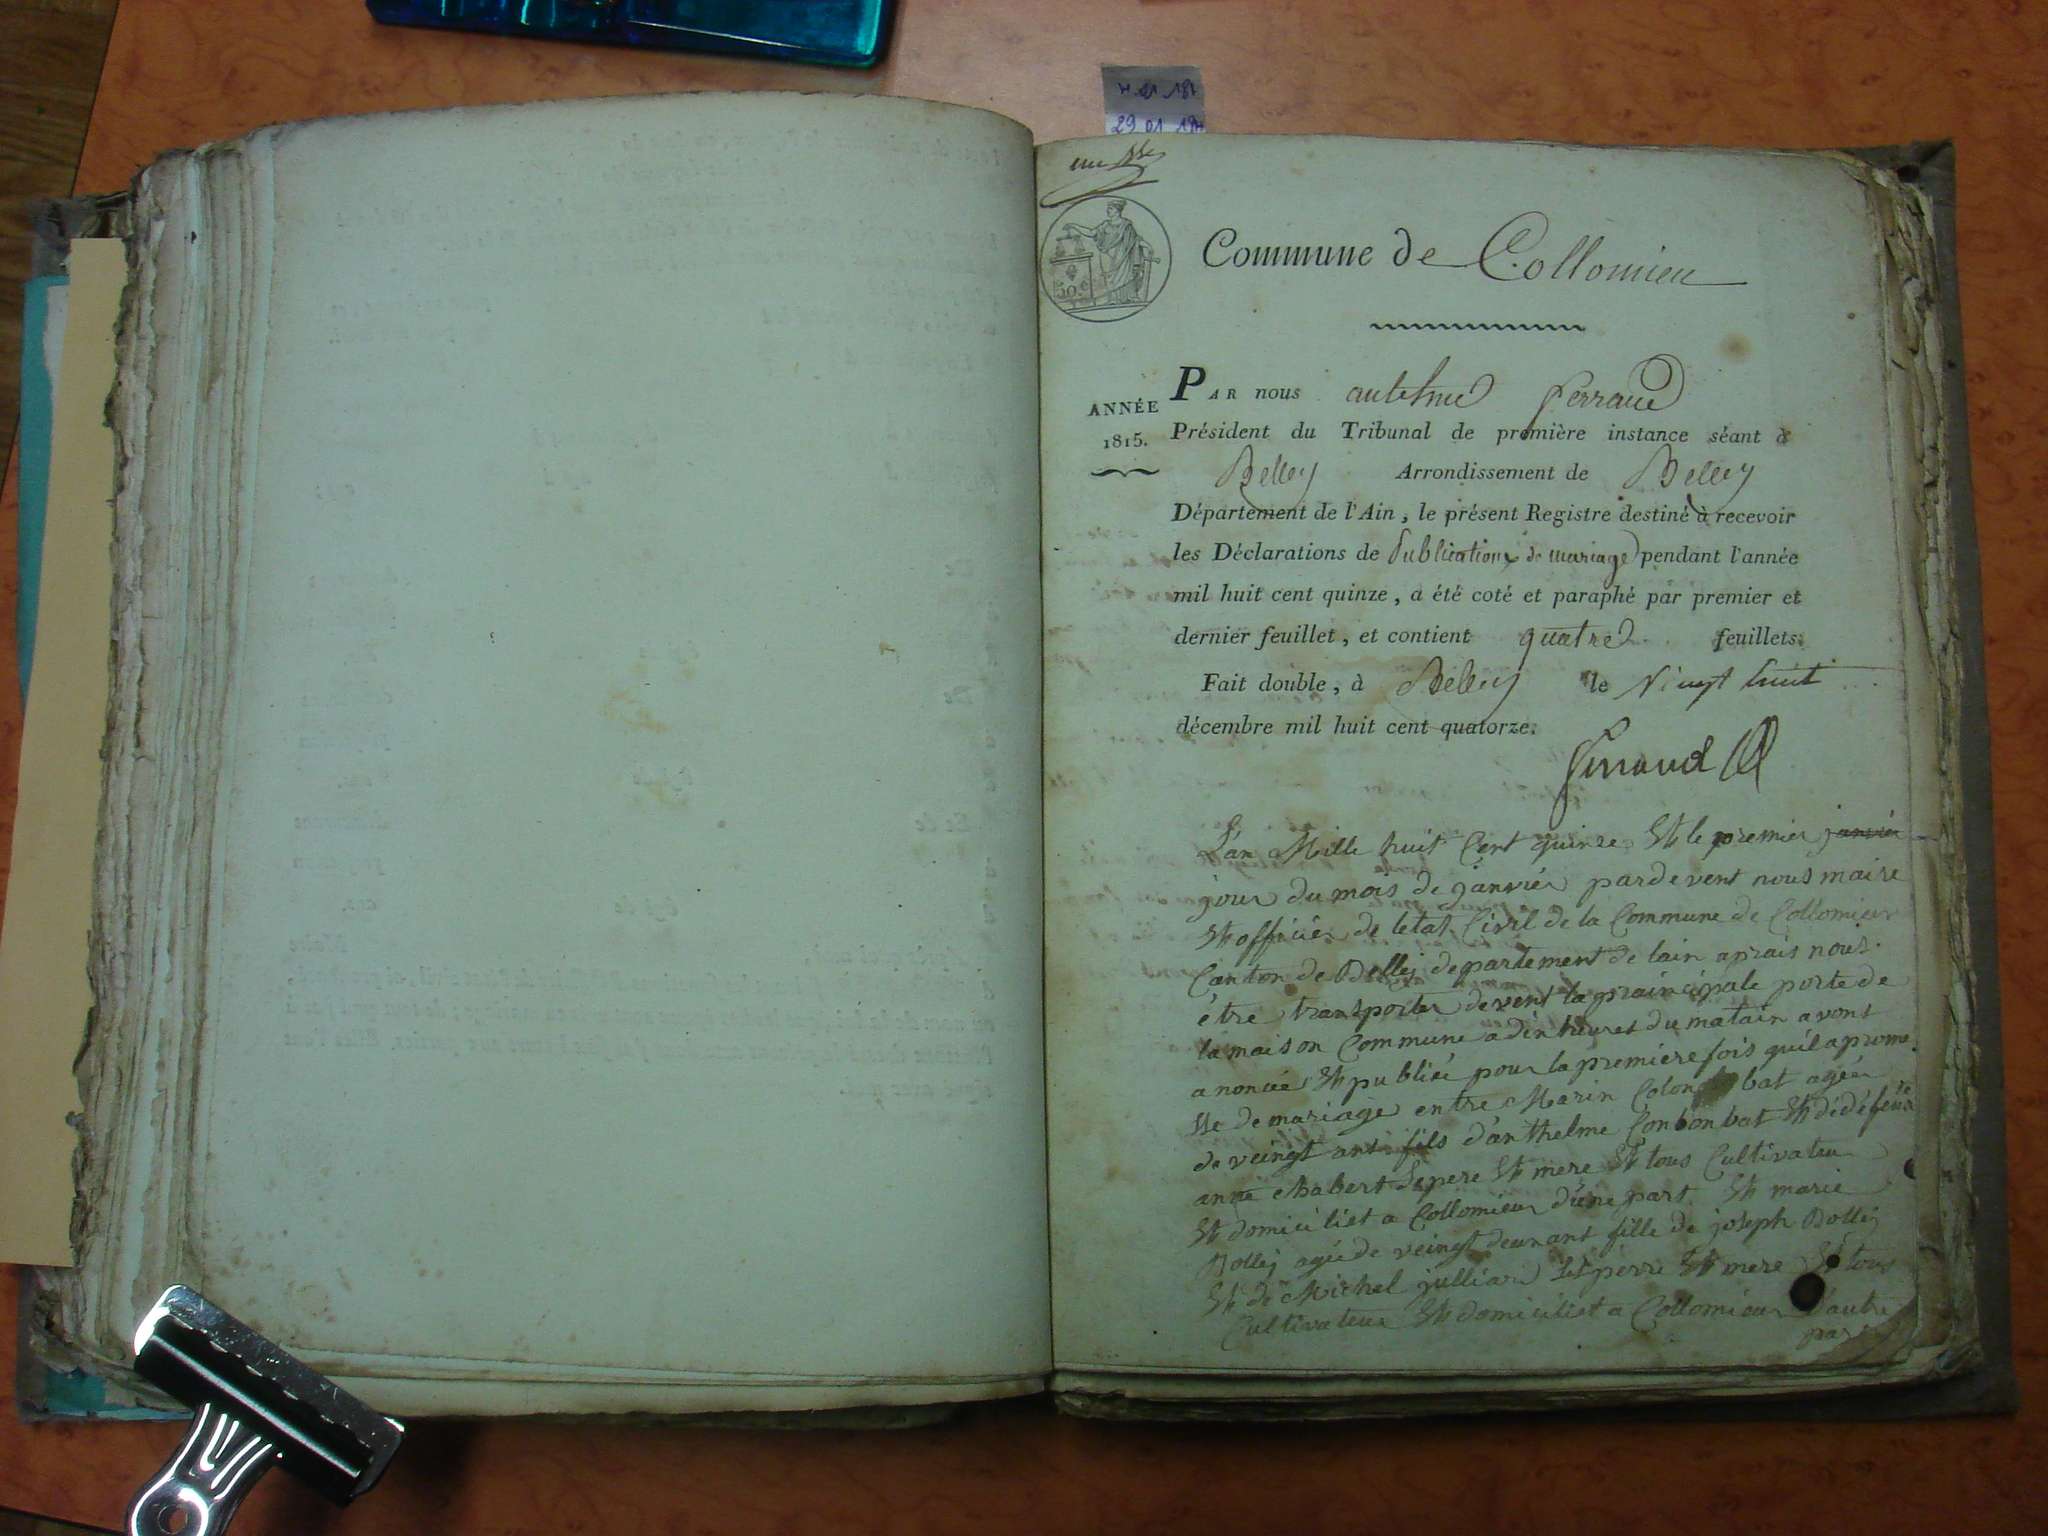 29 01
une
50 c
Commune de Collomieu
ANNÉE
1815.
PAR nous antelme Ferraud
Président du Tribunal de première instance séant à
Belley Arrondissement de Belley
Département de l'Ain, le présent Registre destiné à recevoir
les Déclarations de Publications de mariage pendant l'année
mil huit cent quinze, a été coté et paraphé par premier et
dernier feuillet, et contient quatre feuillets.
Fait double, à Belley le Vingt huit
décembre mil huit cent quatorze.
Ferraud
L'an Mille huit Cent quinze Et le premier janvier
jour du mois de janvier pardevent nous maire
Et officier de letat Civil de la Commune de Collomieu
Canton de Belley departement de lain aprais nous
être transporter devent la praincipale porte de
la maison Commune a dix heures du matain avons
anoncée Et publiée pour la premiere fois quil a prome
sse de mariage entre Marin bat agée
de veingt ans fils d'anthelme Conbonbat Et de défeu
anne Chabert Sepere Et mere Et tous Cultivateur
Et domiciliet a Collomieu d'une part Et marie
Bolley agée de veingt deux ant fille de joseph Bolley
Et de Michel julliand Ses perre Et mere Et tous
Cultivateur Et domiciliet a Collomieu d'autre
part